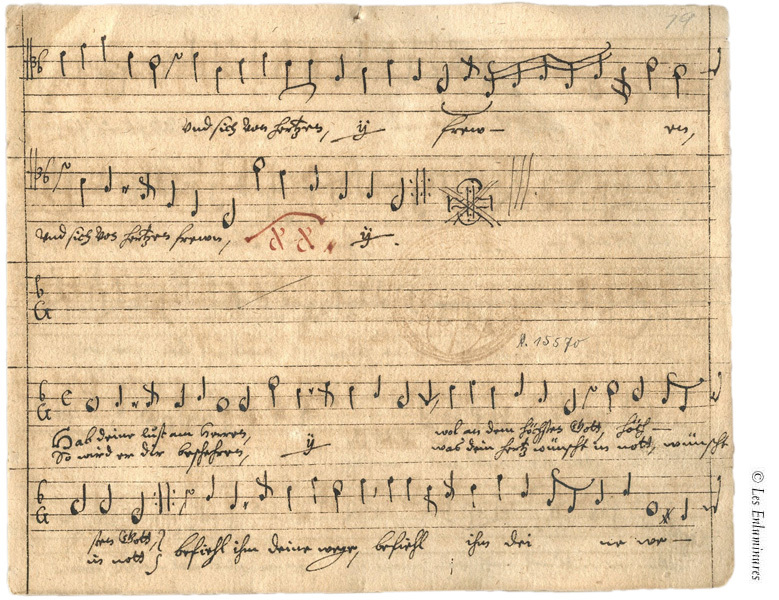 79
vnd sich von hertzen, ij frew— en,
vnd sich von hertzen frewn, ij.
R. 15570
Hab deine lust am Herren, ij wol an dem höchsten Gott, höch—
So wird er dir bescheren, was dein hertz wünscht in nott, wünscht
sten Gott,
in nott
befiehl ihm deine wege, befiehl ihm dei ne we—
© Les Enluminures